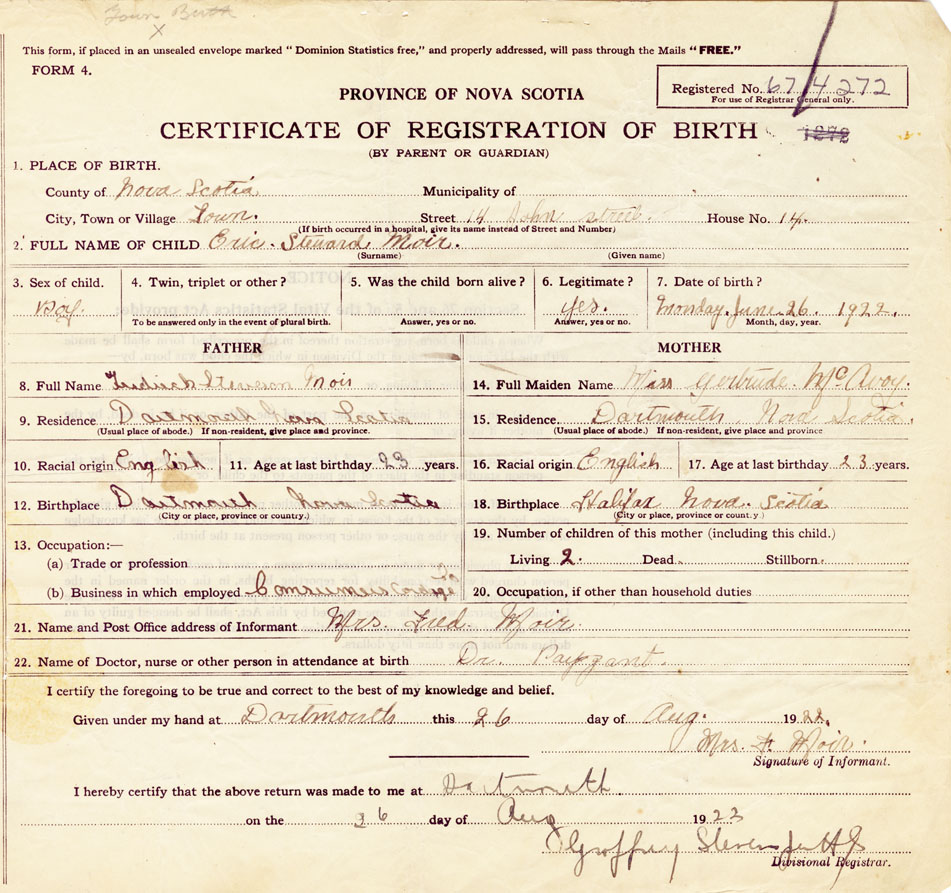 Town Birth
x
This form, if placed in an unsealed envelope marked "Dominion Statistics free," and properly addressed, will pass through the Mails "FREE."
FORM 4.
Registered No. 67/4272
For use of Registrar General only.
PROVINCE OF NOVA SCOTIA
CERTIFICATE OF REGISTRATION OF BIRTH
1272
(BY PARENT OR GUARDIAN)
1. PLACE OF BIRTH.
County of Nova Scotia Municipality of
City, Town or Village Town. Street 14 John street. House No. 14.
(If birth occurred in a hospital, give its name instead of Street and Number)
2. FULL NAME OF CHILD Eric. Steward Moir.
(Surname) (Given name)
3. Sex of child. 4. Twin, triplet or other? 5. Was the child born alive? 6. Legitimate? 7. Date of birth?
Boy. yes. Monday. June. 26. 1922.
To be answered only in the event of plural birth. Answer, yes or no. Answer, yes or no. Month, day, year.
FATHER MOTHER
8. Full Name Fredrick Steveson Moir 14. Full Maiden Name Miss Gertrude. McAvoy.
9. Residence Dartmouth Nova Scotia 15. Residence Dartmouth Nova Scotia.
(Usual place of abode.) If non-resident, give place and province. (Usual place of abode.) If non-resident, give place and province
10. Racial origin English 11. Age at last birthday 23 years. 16. Racial origin English 17. Age at last birthday 23 years.
12. Birthplace Dartmouth Nova Scotia 18. Birthplace Halifax Nova. Scotia
(City or place, province or country.) (City or place, province or county.)
13. Occupation:— 19. Number of children of this mother (including this child.)
(a) Trade or profession Living 2. Dead Stillborn
(b) Business in which employed Consumers Cordage Co 20. Occupation, if other than household duties
21. Name and Post Office address of Informant Mrs. Fred. Moir.
22. Name of Doctor, nurse or other person in attendance at birth Dr. Payzant.
I certify the foregoing to be true and correct to the best of my knowledge and belief.
Given under my hand at Dartmouth this 26 day of Aug. 1922.
Mrs. F. Moir.
Signature of Informant.
I hereby certify that the above return was made to me at Dartmouth.
on the 26 day of Aug 1923
Geoffrey Stevens
Divisional Registrar.